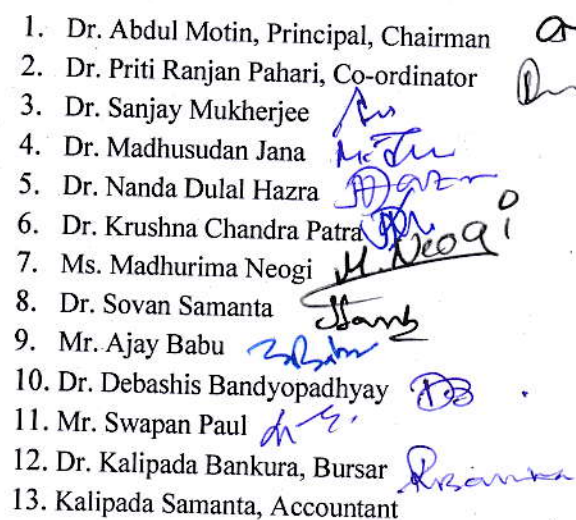 1. Dr. Abdul Motin, Principal, Chairman
2. Dr. Priti Ranjan Pahari, Co-ordinator
3. Dr. Sanjay Mukherjee
4. Dr. Madhusudan Jana
5. Dr. Nanda Dulal Hazra
6. Dr. Krushna Chandra Patra
7. Ms. Madhurima Neogi M. Neogi
8. Dr. Sovan Samanta
9. Mr. Ajay Babu
10. Dr. Debashis Bandyopadhyay DB
11. Mr. Swapan Paul
12. Dr. Kalipada Bankura, Bursar
13. Kalipada Samanta, Accountant